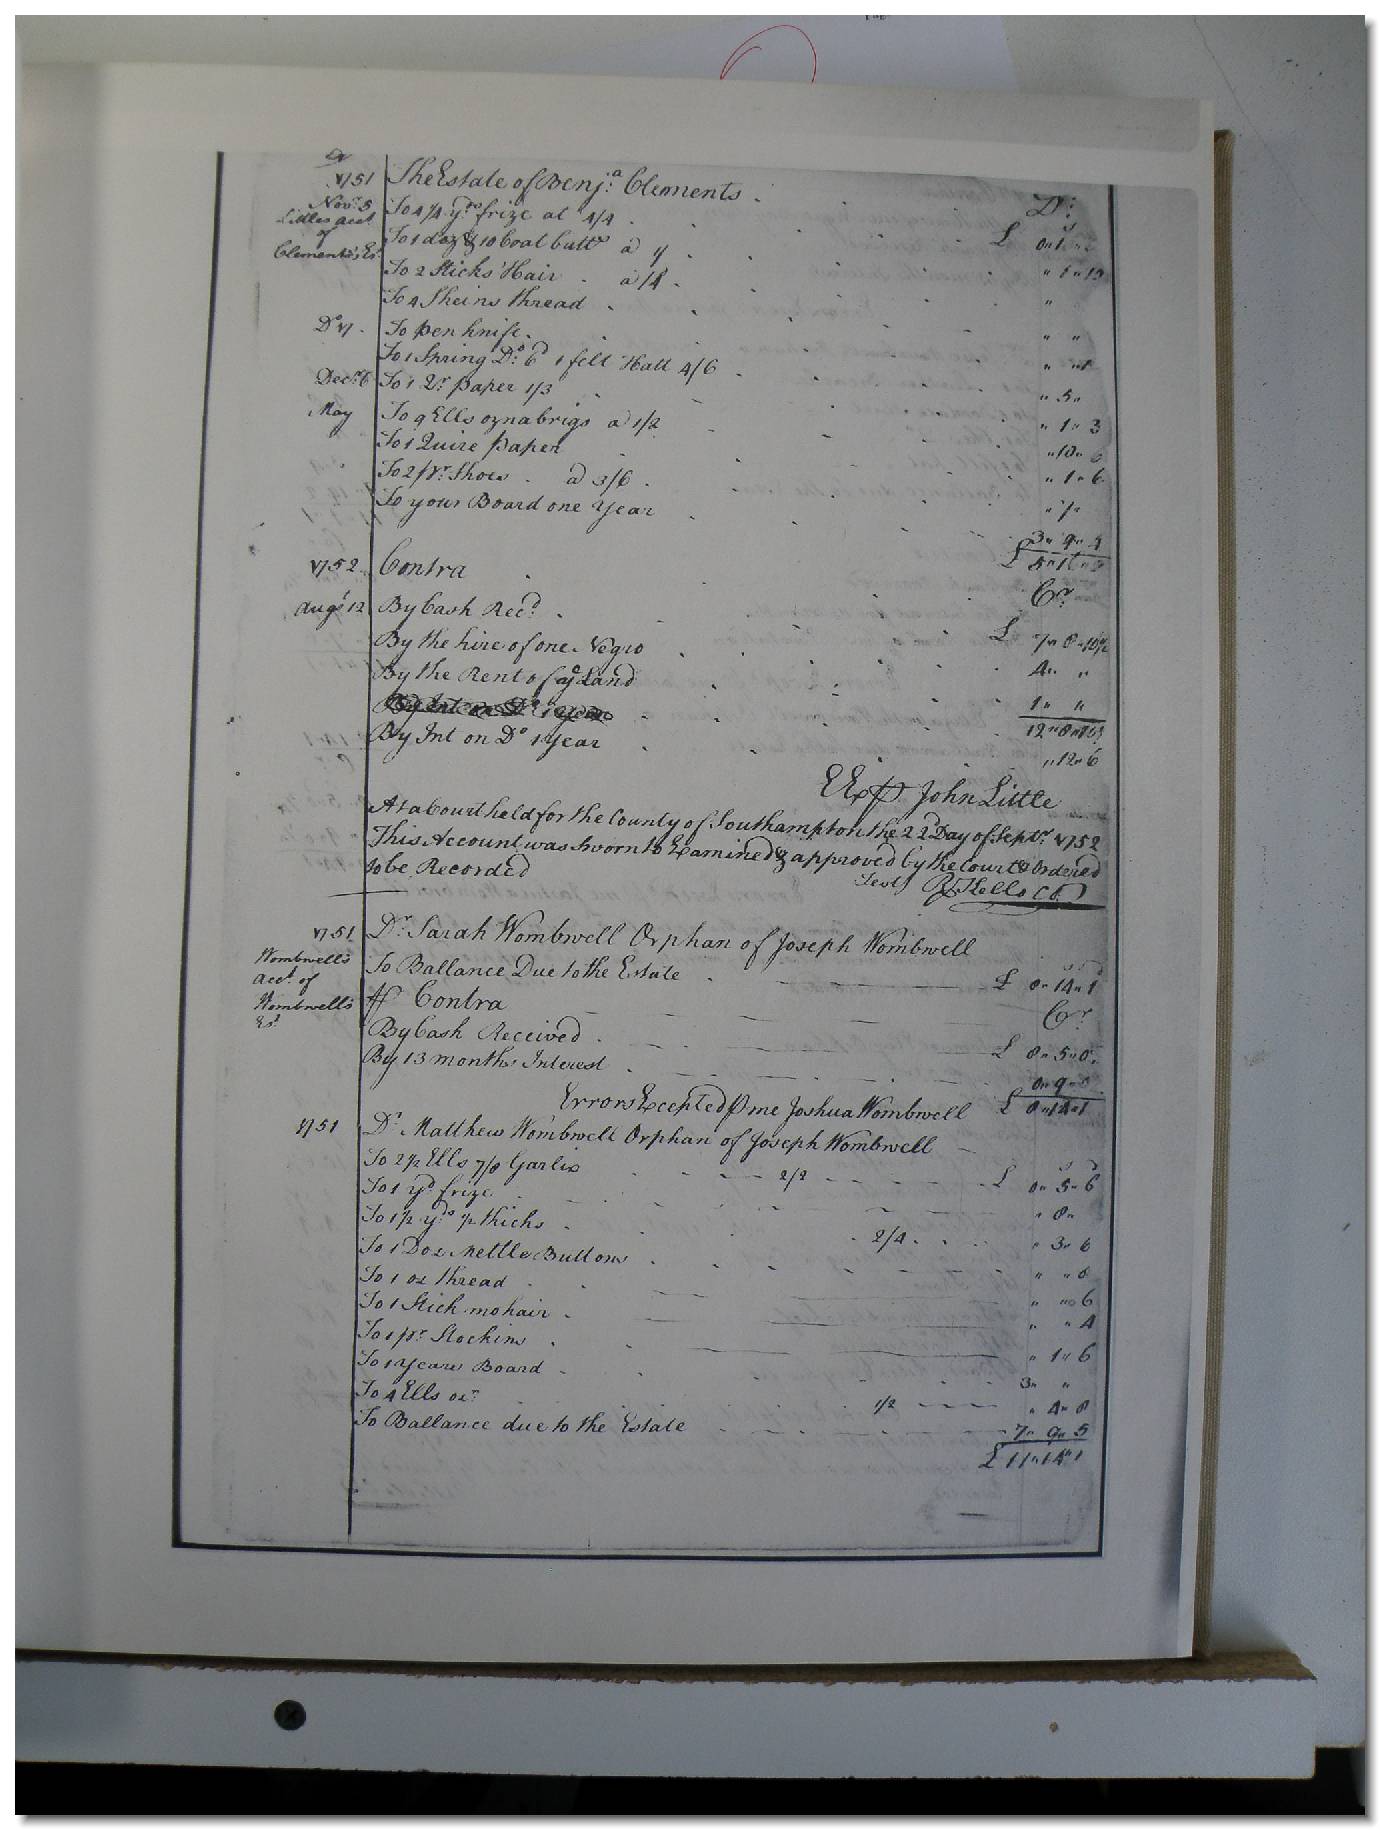 1751 The Estate of Benja. Clements Dr.
Novr. 5 To 4 1/4 yds frize at 4/4 £
Littles acct of Clements's Est. To 1 doz & 10 Coat butts a 1/ " 1 " 10
To 2 Sticks Hair a /4
To 4 Skeins thread "
Do 17 To pen knife " "
To 1 Spring Do. 6d 1 felt Hatt 4/6 " 5 "
Decr. 6 To 1 Qr. paper 1/3 " 1 " 3
May To 9 Ells oznabrigs a 1/2 " 10 " 6
To 1 Quire paper " 1 " 6
To 2 pr. Shoes a 3/6 " 7 "
To your Board one Year 3 " 9 " 4
£
1752 Contra Cr.
Augt 12 By Cash Recd. £ 7 " 8 " 10 1/2
By the hire of one Negro 4 " "
By the Rent of ye Land 1 " "
By Int on Do 1 Year
12 " 8 " 10 1/2
By Int on Do 1 Year " 12 " 6
E Exp p John Little
At a Court held for the County of Southampton the 22d Day of Septr. 1752
This Account was Sworn to Examined & approved by the Court & Ordered
to be Recorded Test R. Kello CC
1751 Dr. Sarah Wombwell Orphan of Joseph Wombwell
Wombwell's acct. of Wombwell's Est To Ballance Due to the Estate £ 8 " 14 " 1
Contra Cr.
By Cash Received £ 8 " 5 " 0
By 13 months Interest 0 " 9 "
Errors Excepted p me Joshua Wombwell £ 8 " 14 " 1
1751 Dr. Matthew Wombwell Orphan of Joseph Wombwell
To 2 1/2 Ells 7/8 Garlix 2/2 £ 0 " 5 " 6
To 1 yd. frize " 8 "
To 1 1/2 yds 1/2 thicks 2/4 " 3 " 6
To 1 Doz Mettle Buttons " " 8
To 1 oz thread " " 6
To 1 Stick mohair " " 4
To 1 pr. Stockins " 1 " 6
To 1 Years Board 3 " "
To 4 Ells oz. 1/2 " 4 " 8
To Ballance due to the Estate 7 " 9 " 5
£ 11 " 14 " 1